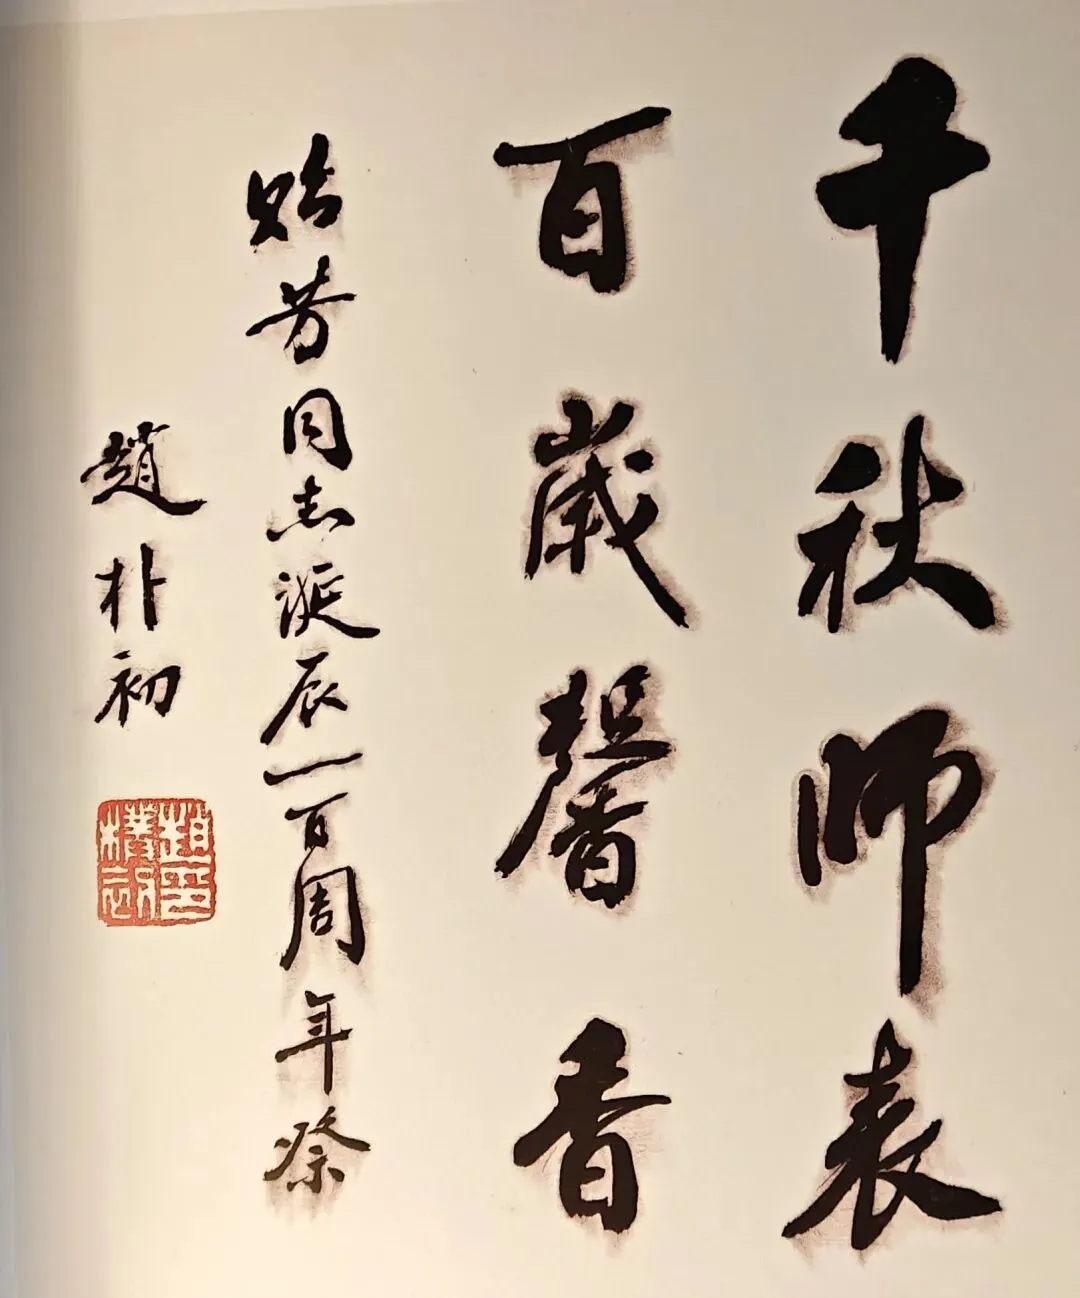 千秋师表
百歲馨香
贻芳同志诞辰一百周年祭
趙朴初
趙印樸初